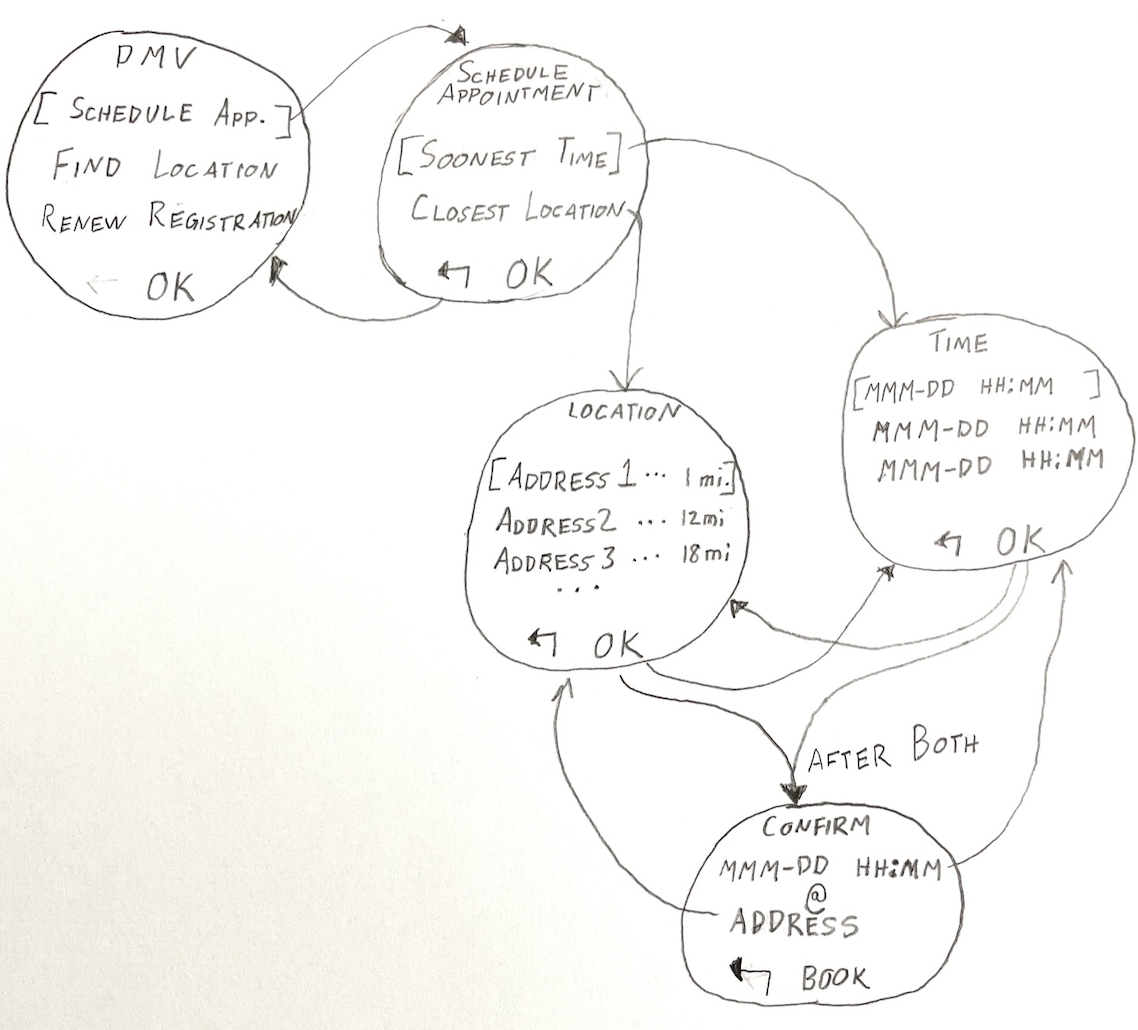 DMV
[ SCHEDULE APP. ]
FIND LOCATION
RENEW REGISTRATION
← OK
SCHEDULE
APPOINTMENT
[SOONEST TIME]
CLOSEST LOCATION
↰ OK
TIME
[MMM-DD HH:MM ]
MMM-DD HH:MM
MMM-DD HH:MM
↰ OK
LOCATION
[ADDRESS 1 ... 1 mi.]
ADDRESS2 ... 12mi
ADDRESS 3 ... 18mi
...
↰ OK
AFTER BOTH
CONFIRM
MMM-DD HH:MM
@
ADDRESS
↰ BOOK